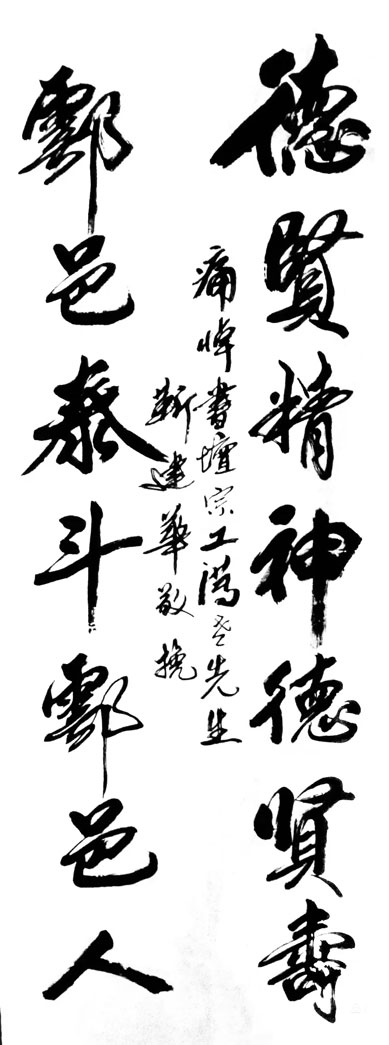 德賢精神德賢壽
痛悼書壇宗工老先生
靳建華敬挽
鄠邑泰斗鄠邑人